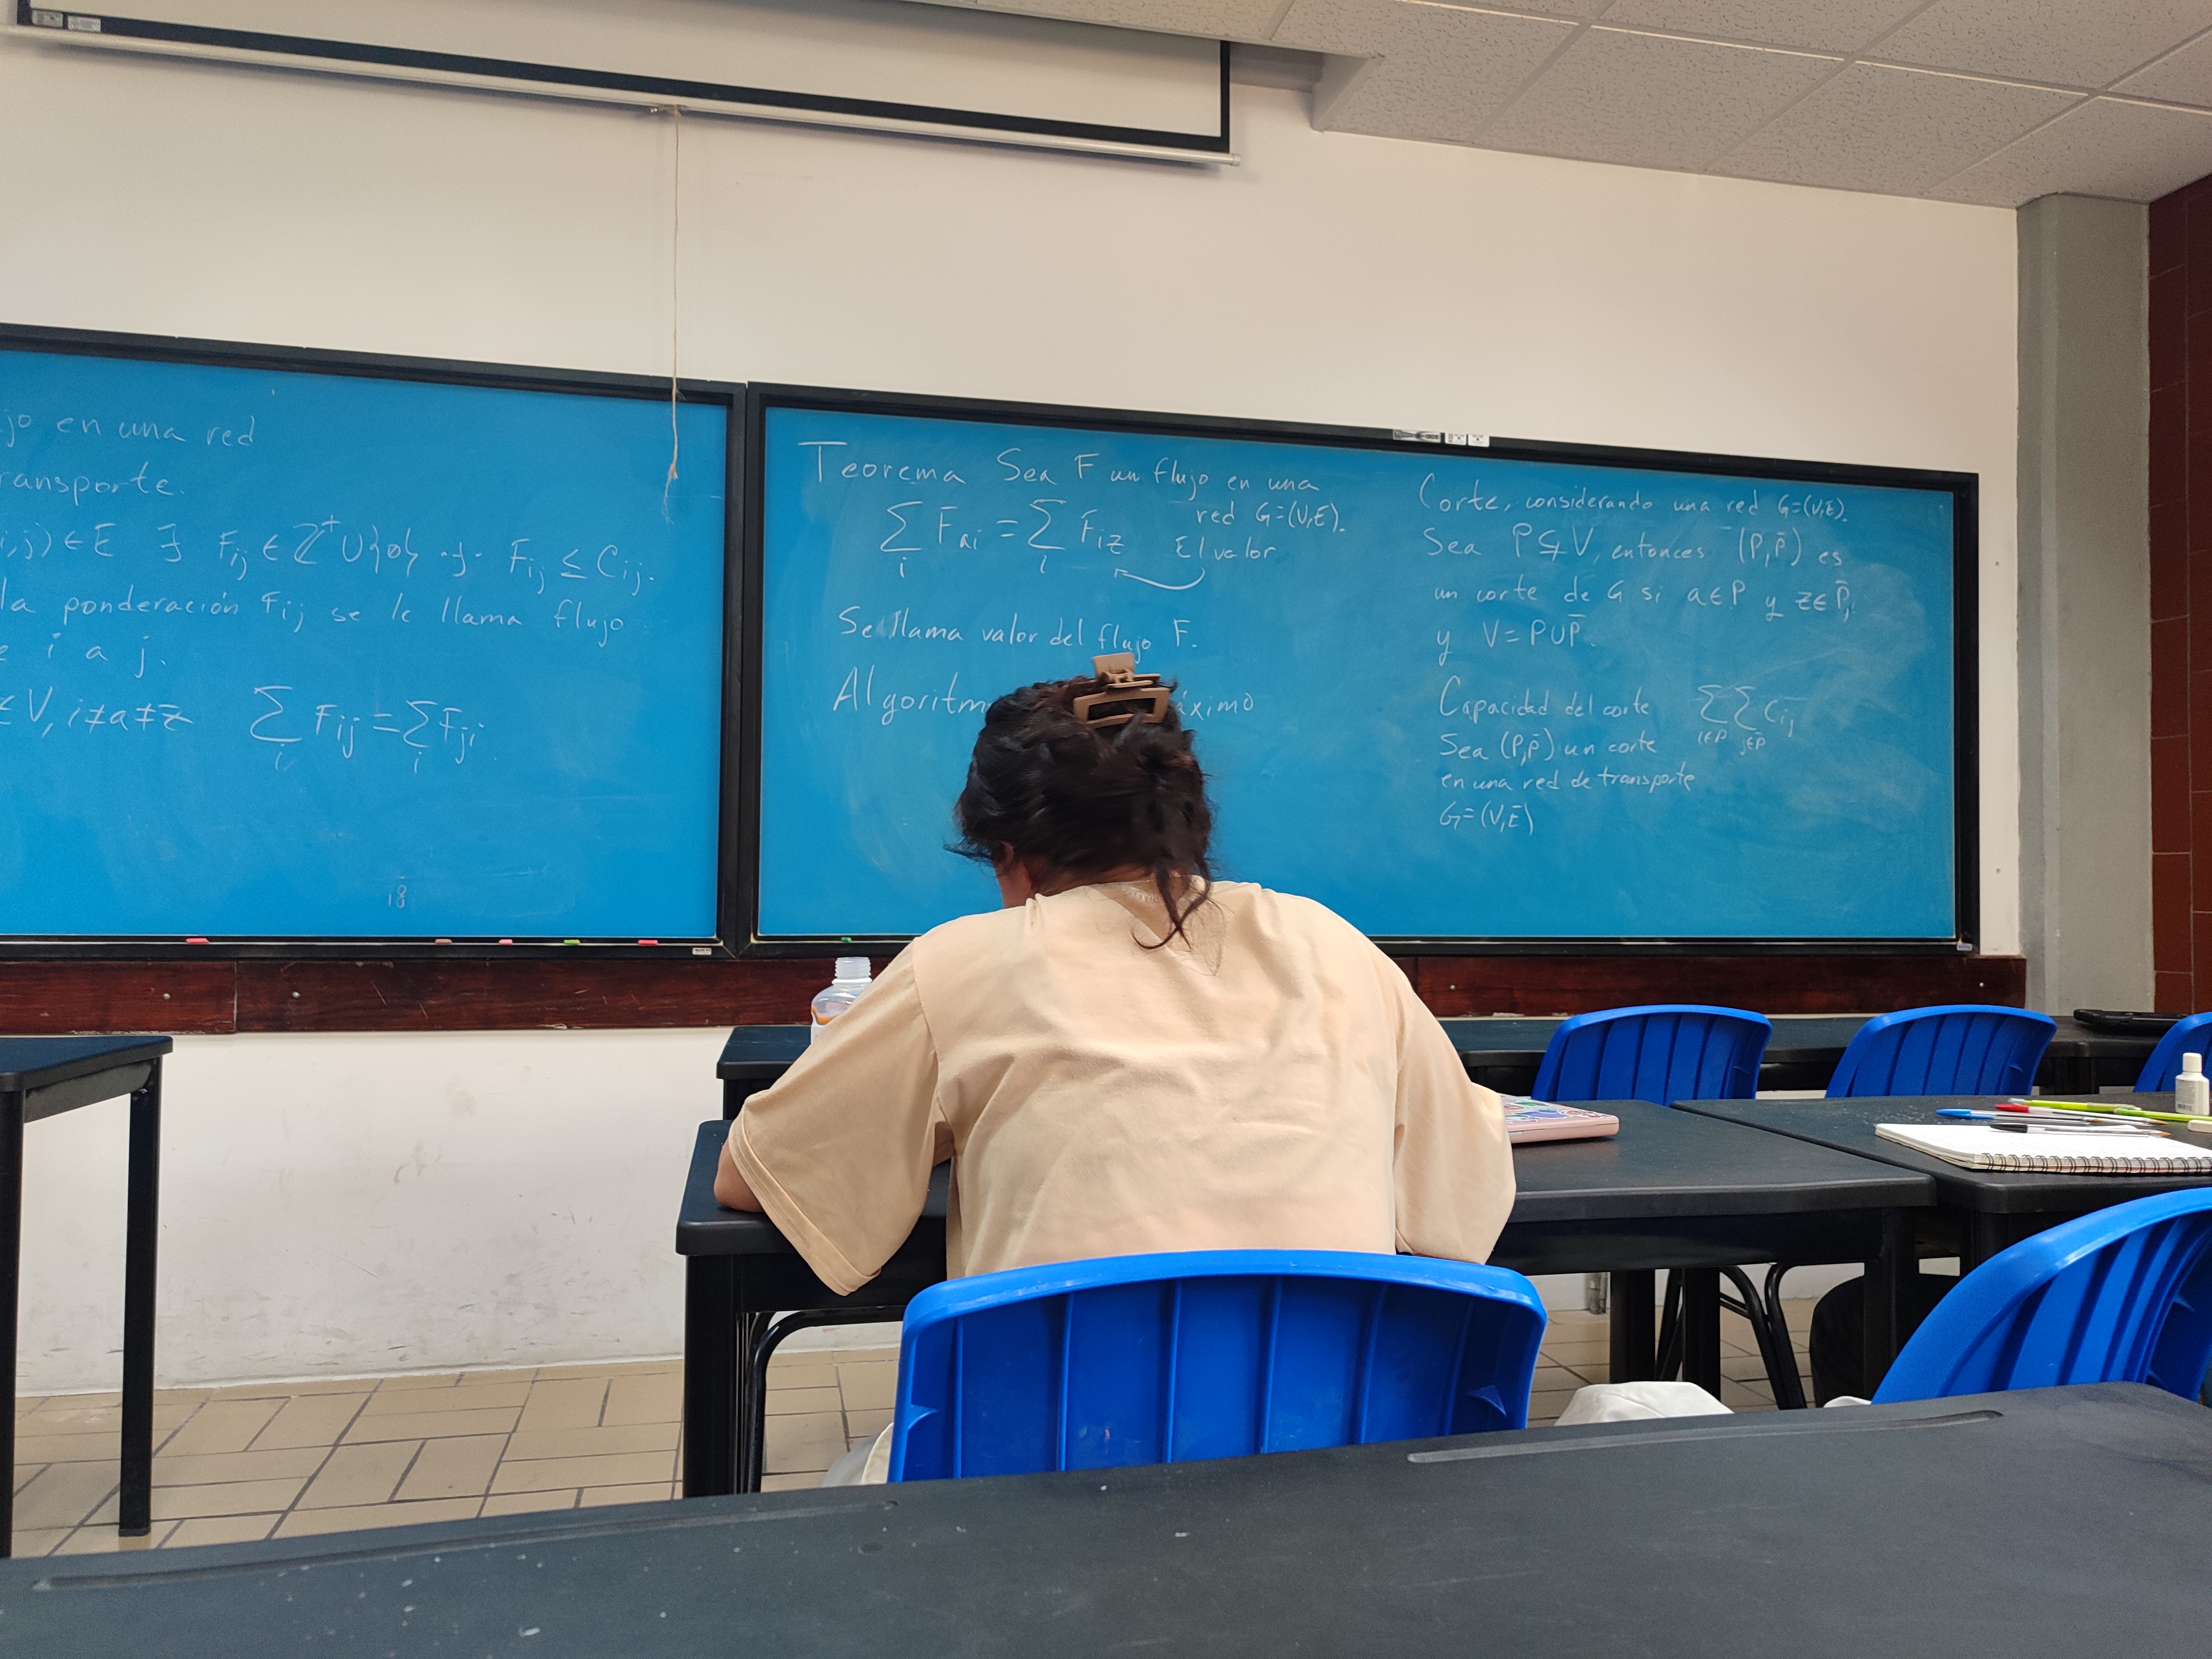 jo en una red
ransporte.
i,j) ∈ E ∃ Fij ∈ ℤ⁺∪{0} ·∋· Fij ≤ Cij.
la ponderación Fij se le llama flujo
e i a j.
∈ V, i≠a≠z ∑i Fij = ∑i Fji.
18
Teorema Sea F un flujo en una
red G=(V,E).
∑i Fai = ∑i Fiz El valor
Se llama valor del flujo F.
Algoritm áximo
Corte, considerando una red G=(V,E).
Sea P⊊V, entonces (P,P̄) es
un corte de G si a∈P y z∈P̄,
y V=P∪P̄.
Capacidad del corte ∑i∈P ∑j∈P̄ Cij
Sea (P,P̄) un corte
en una red de transporte
G=(V,E)